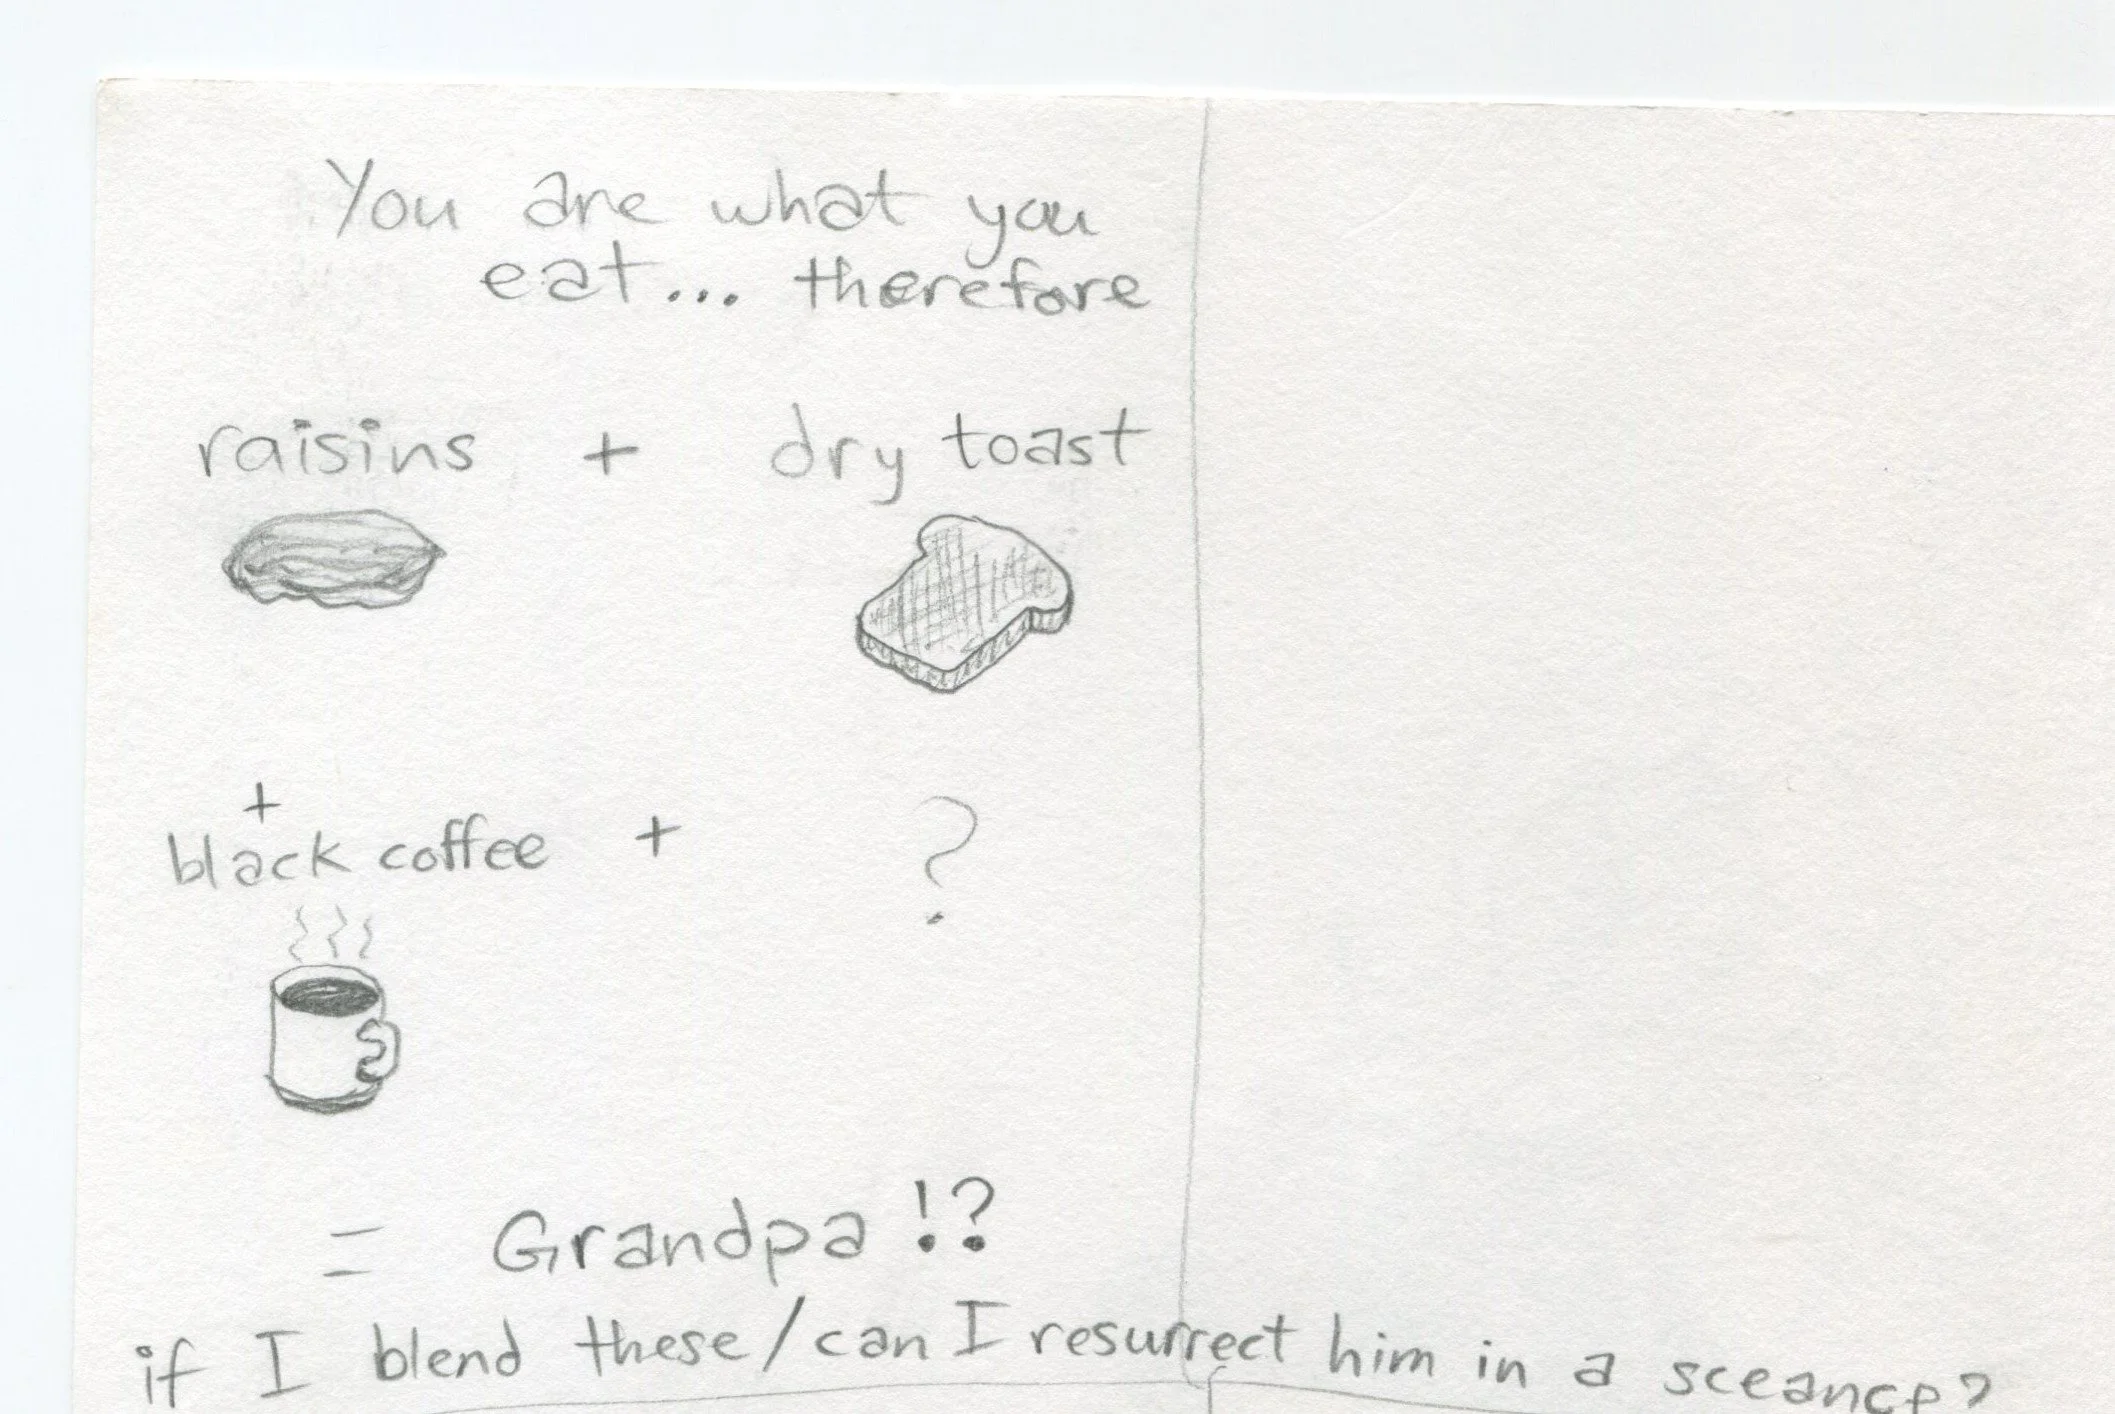 You are what you
eat... therefore
raisins + dry toast
+
black coffee + ?
= Grandpa!?
if I blend these/can I resurrect him in a sceance?